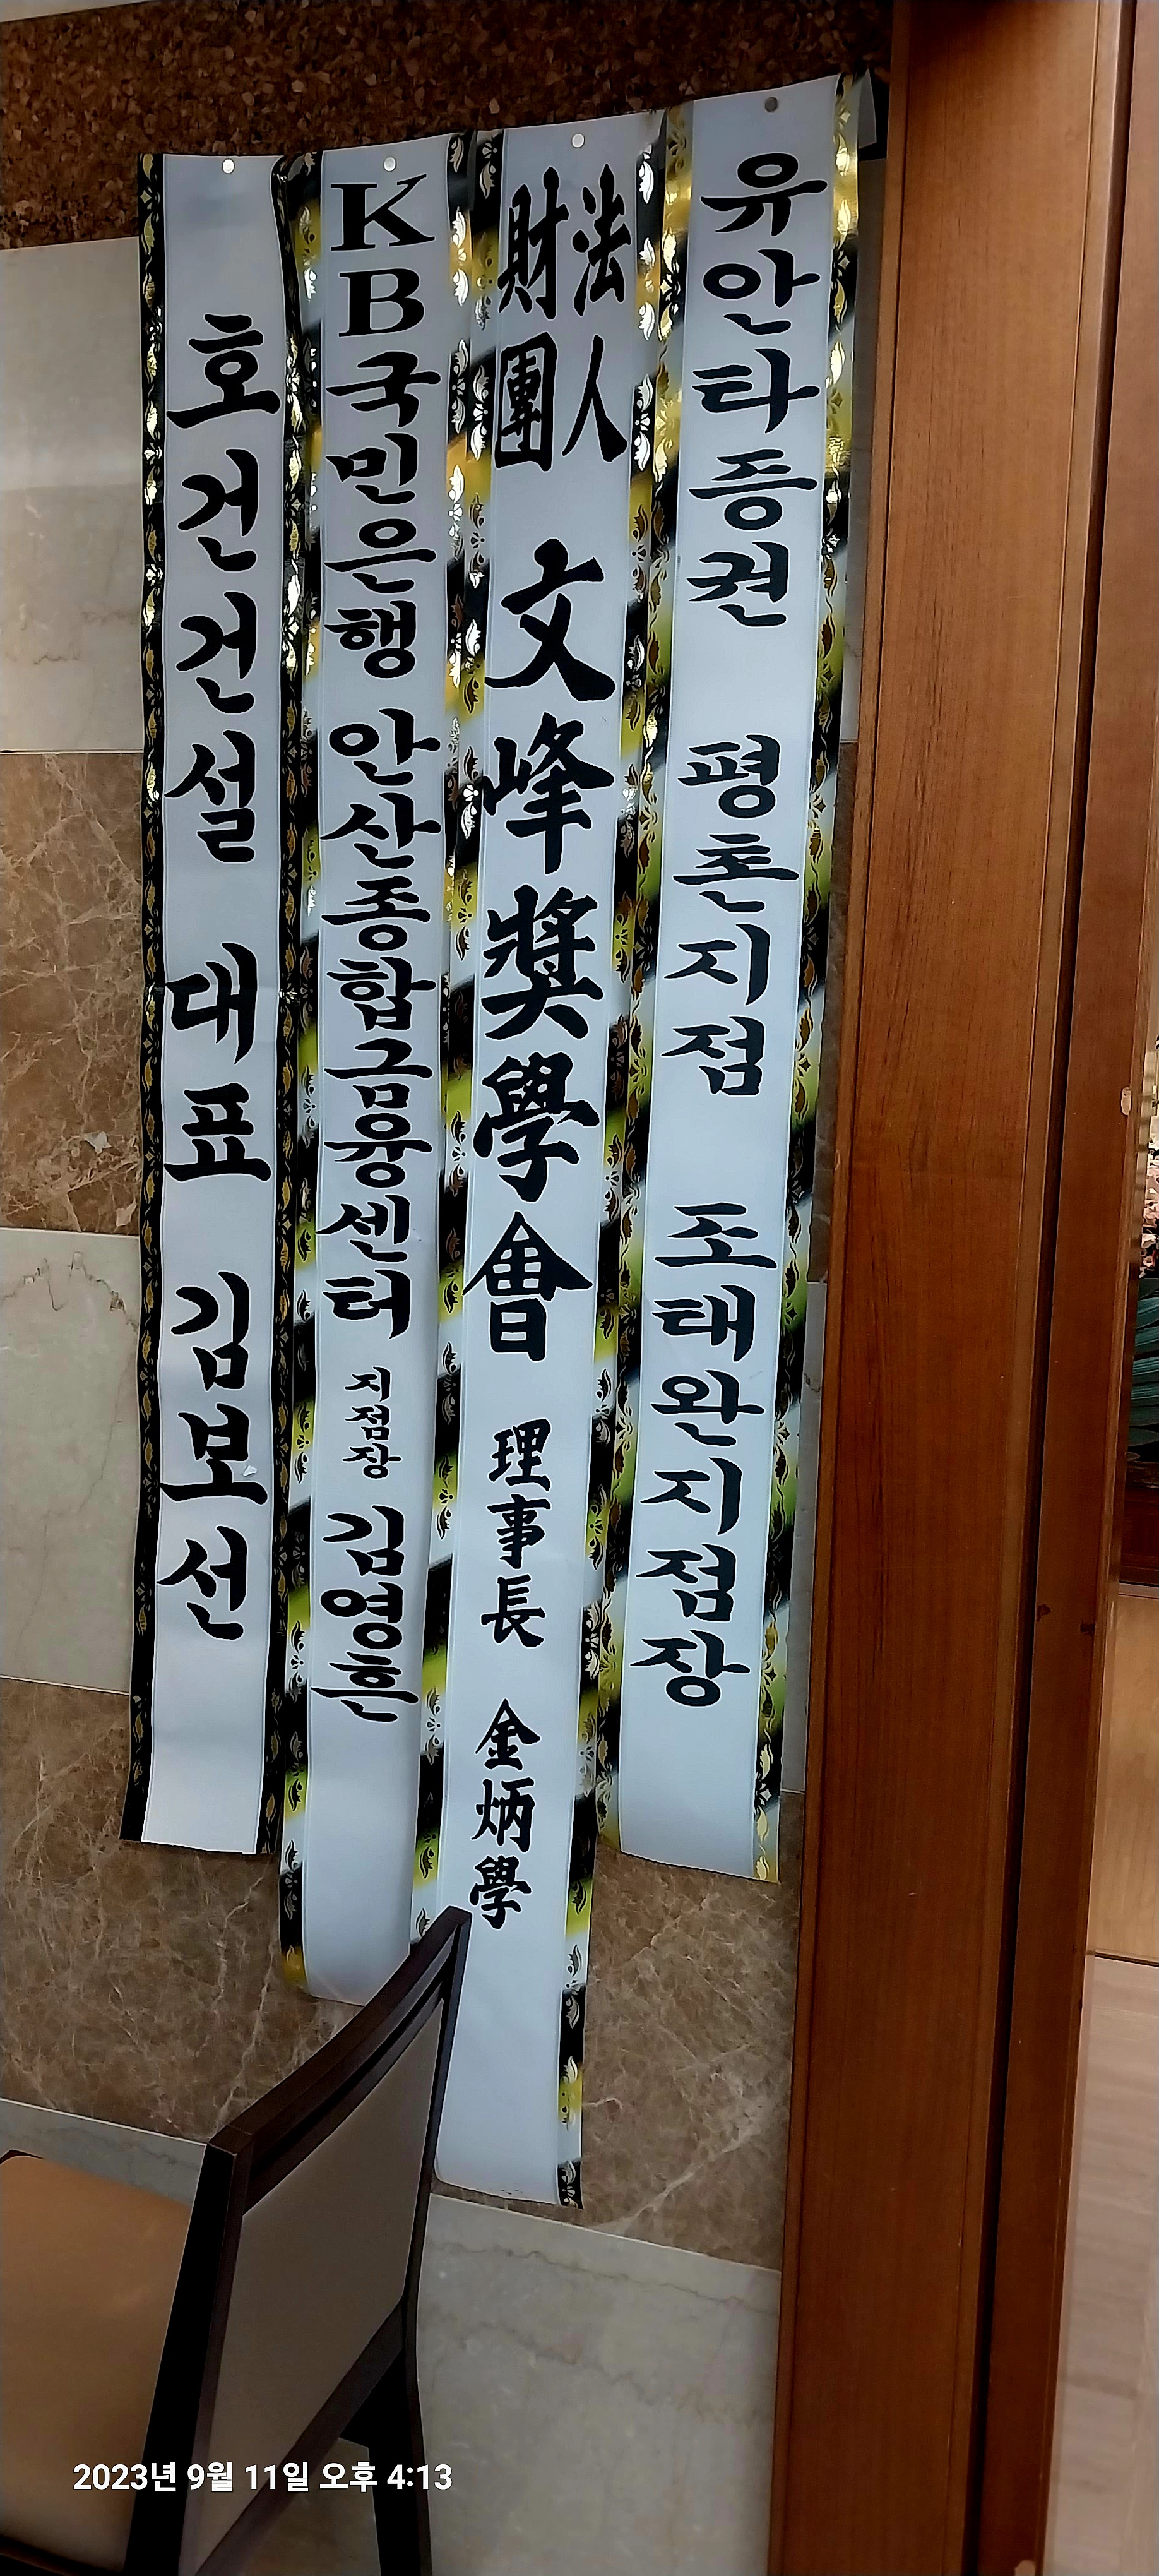 호건건설 대표 김보선
KB국민은행 안산종합금융센터 지점장 김영흔
財團法人 文峰奬學會 理事長 金炳學
유안타증권 평촌지점 조태완지점장
2023년 9월 11일 오후 4:13